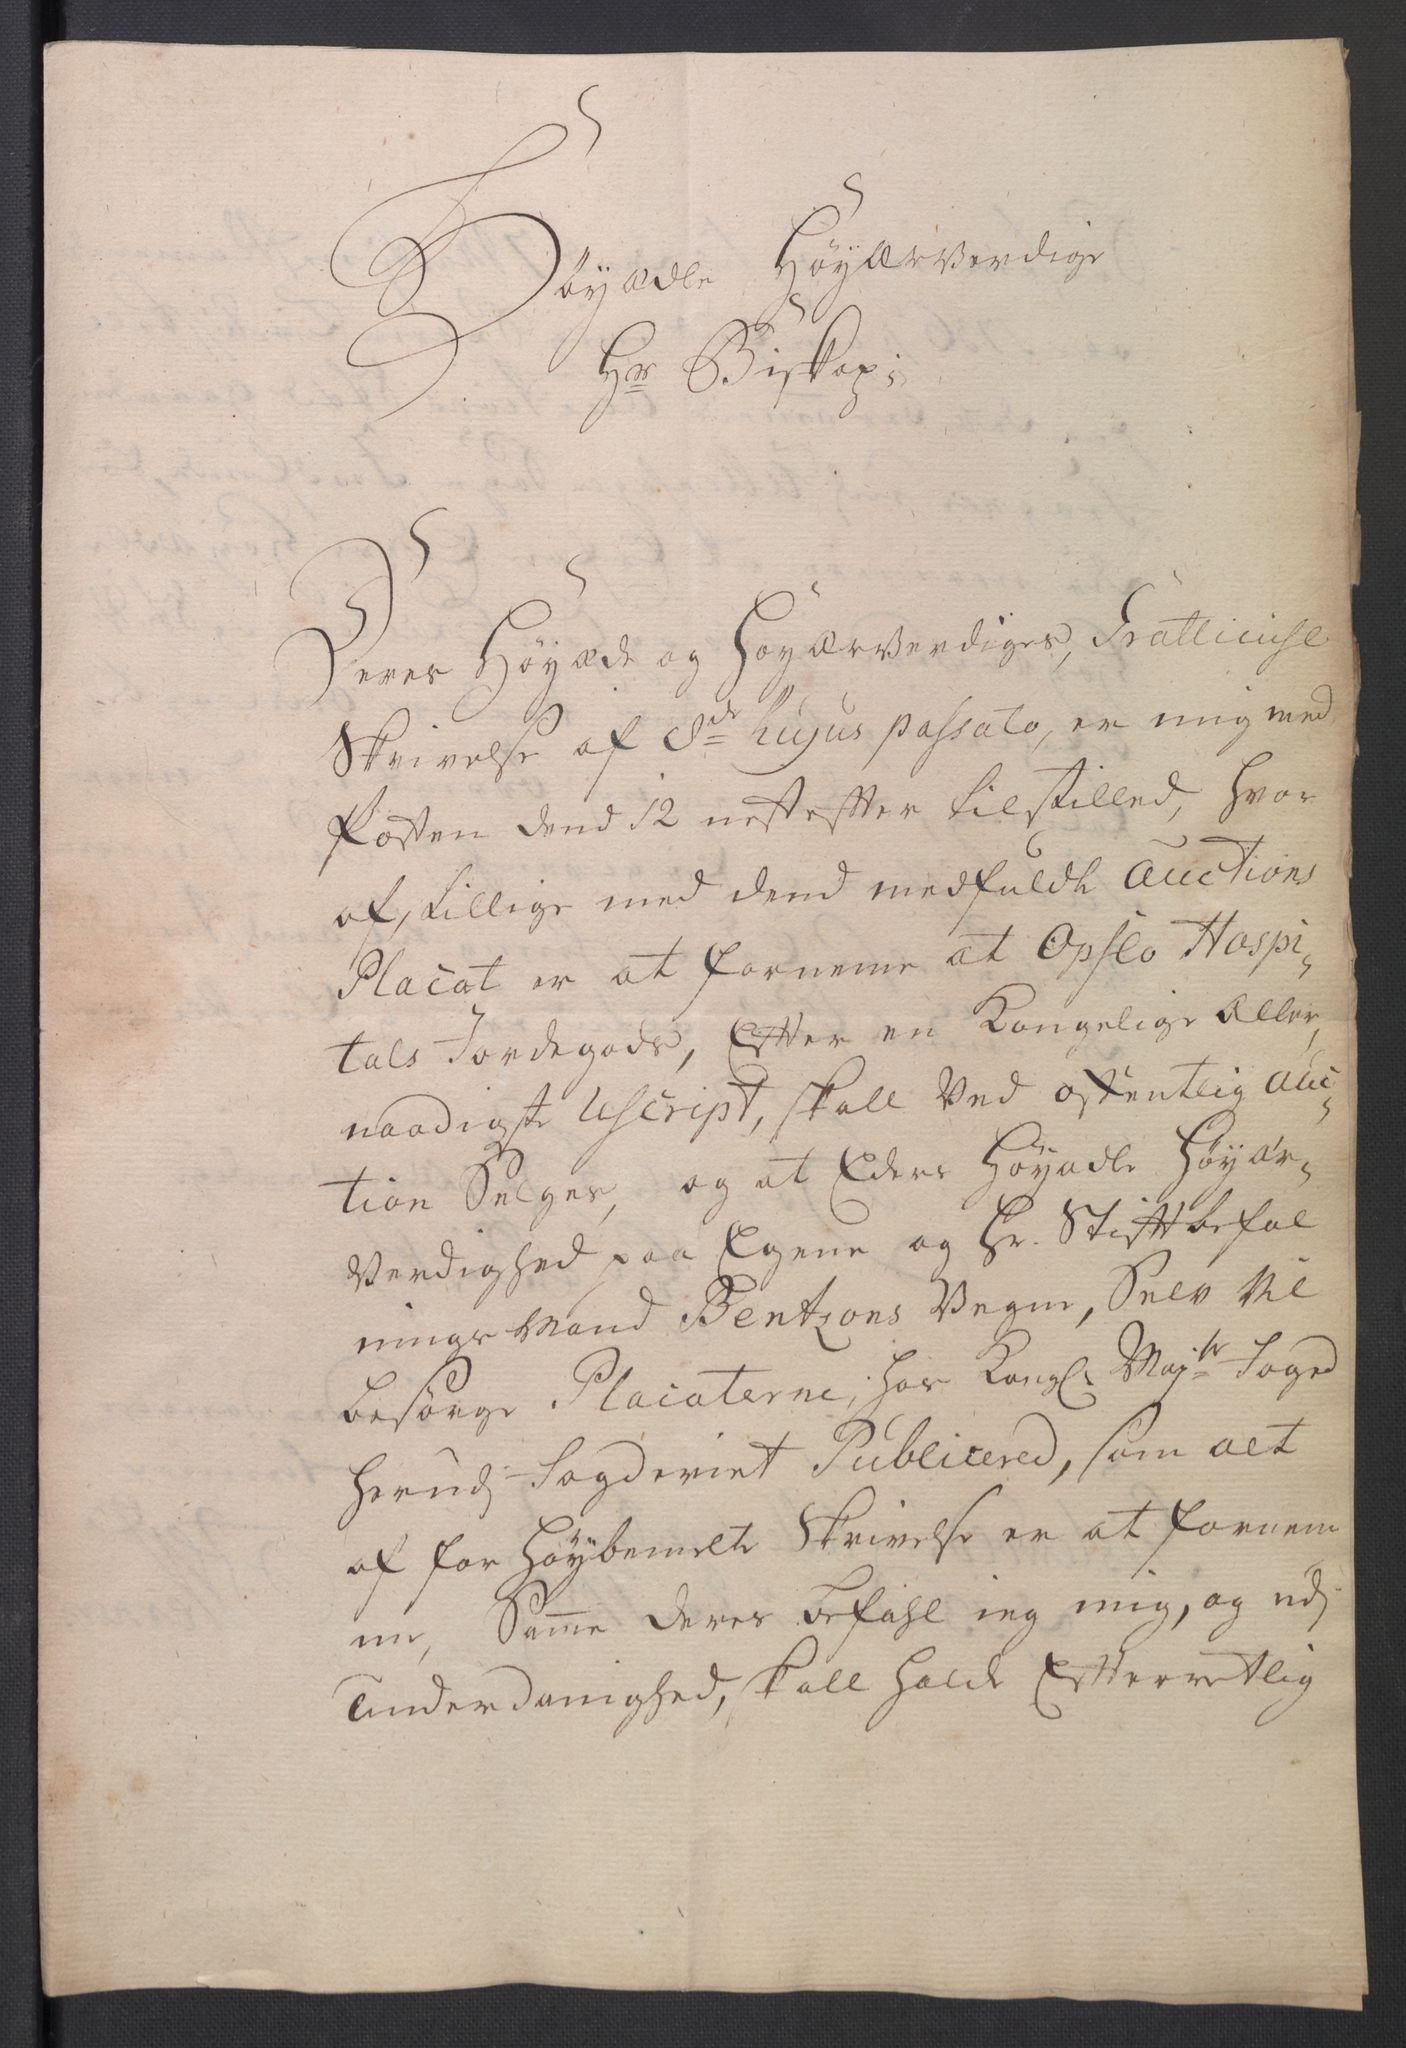 Høyædle HøyærVerdige
Hr Biskop;
Deres Høyædle og HøyærVerdiges, Gratlieuse
Skrivelse af 8de hujus passato, er mig med
Posten dend 12 nestefter tilstilled, hvor
af, tillige med dend medfuldte Auctions
Placat er at forneme at Opslo Hospi-
tals Jordegods, Efter en Kongelige Aller,
naadigste Rescript, skall Ved offentlig Auc-
tion Selges, og at Eders Høyædle Høyær-
Verdighed paa Egene og Hr. Stiftbefal
ningsMand Bentzons Vegne, Selv Vil
besørge Placaterne, hos Kongl. Majts Foged
herudj Fogderiet Publicered, som alt
af for Høybemelte Skrivelse er at fornem
me, Samme deres befahl ieg mig, og udj
Underdanighed, skall holde Efterretlig